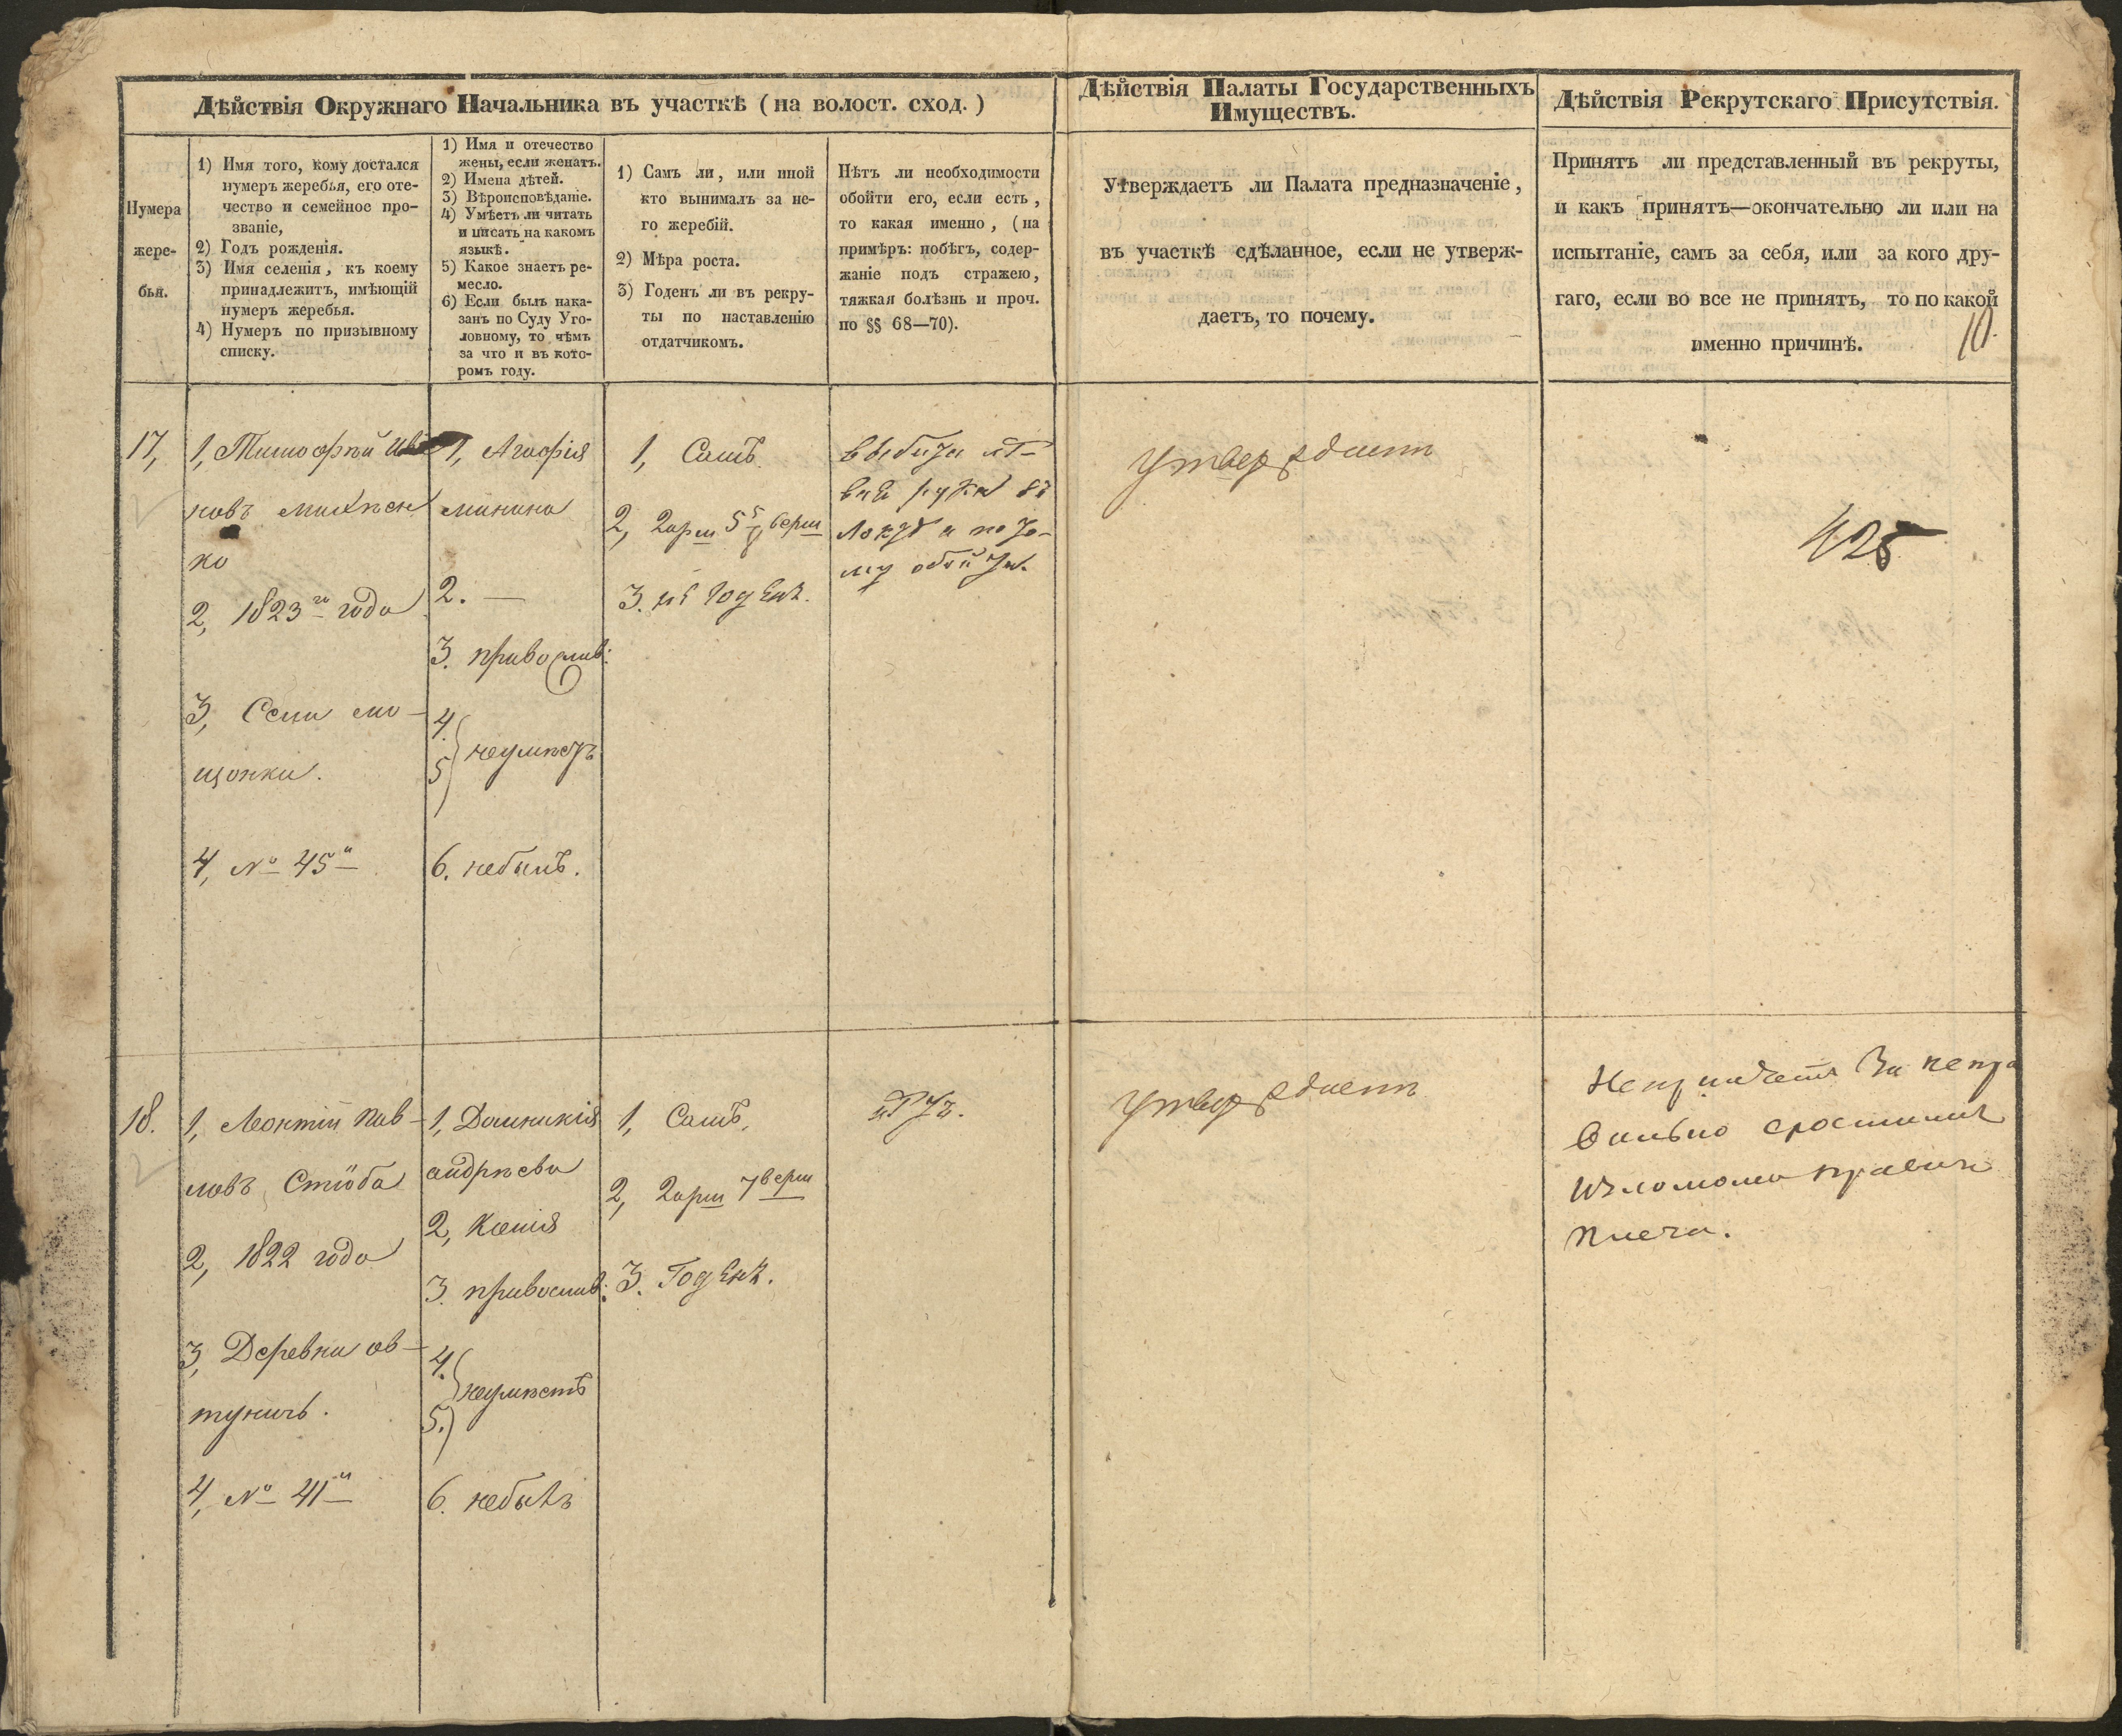 Дѣйствія Окружнаго Начальника въ участкѣ (на волост. сход.)
Нумера
жере-
бья.
1) Имя того, кому достался
нумеръ жеребья, его оте-
чество и семейное про-
званіе,
2) Годъ рожденія.
3) Имя селенія, къ коему
принадлежитъ, имѣющій
нумеръ жеребья.
4) Нумеръ по призывному
списку.
1) Имя и отечество
жены, если женатъ.
2) Имена дѣтей.
3) Вѣроисповѣданіе.
4) Умѣетъ ли читать
и писать на какомъ
языкѣ.
5) Какое знаетъ ре-
месло.
6) Если былъ нака-
занъ по Суду Уго-
ловному, то чѣмъ
за что и въ кото-
ромъ году.
1) Самъ ли, или иной
кто вынималъ за не-
го жеребій.
2) Мѣра роста.
3) Годенъ ли въ рекру-
ты по наставленію
отдатчикомъ.
Нѣтъ ли необходимости
обойти его, если есть,
то какая именно, (на
примѣръ: побѣгъ, содер-
жаніе подъ стражею,
тяжкая болѣзнь и проч.
по §§ 68—70).
Дѣйствія Палаты Государственныхъ
Имуществъ.
Утверждаетъ ли Палата предназначеніе,
въ участкѣ сдѣланное, если не утверж-
даетъ, то почему.
Дѣйствія Рекрутскаго Присутствія.
Принятъ ли представленный въ рекруты,
и какъ принятъ—окончательно ли или на
испытаніе, самъ за себя, или за кого дру-
гаго, если во все не принятъ, то по какой
именно причинѣ.
10.
17,
1, Тимофѣй Ива
новъ Михѣен
ко
2, 1823го года
3, Села
щонки.
4, № 45й
1, Агафія
минина
2. —
3. православ:
4.
5 } неумѣетъ
6. небылъ.
1, Самъ
2, 2 арш 5 5/8 верш
3. не годенъ.
рука въ
Локтѣ и по то-
му обойти.
утверждаетъ
425
18.
1, Леонтій Пав-
ловъ
2, 1822 года
3, Деревни ов-
туничъ.
4, № 41й
1, Домникія
андрѣева
2, Ксенія
3. православ:
4.
5. } неумѣетъ
6. небылъ
1, Самъ,
2, 2 арш 7 верш
3. Годенъ.
нѣтъ.
утверждаетъ
Непринятъ За непра
вильно сростшимся
изломомъ праваго
плеча.